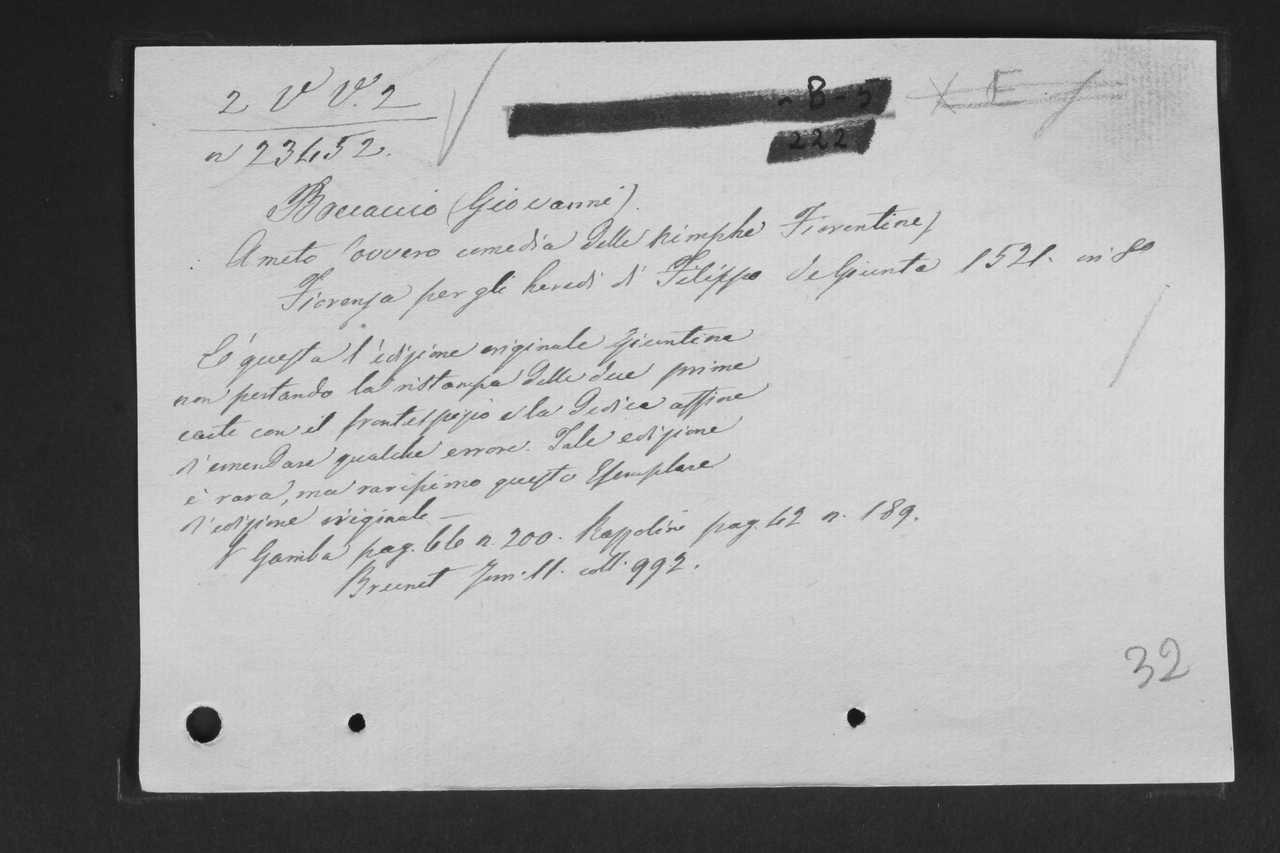 2 V V. 2
n 23452.
- B - 5
222
X E
Boccaccio (Giovanni).
Ameto ovvero comedia delle Nimphe Fiorentine,
Fiorenza per gli heredi di Filippo de Giunta 1521. in 8º
E' questa l'edizione originale Giuntina
non portando la ristampa delle due prime
carte con il frontespizio e la Dedica affine
d'emendare qualche errore. Tale edizione
è rara, ma rarissimo questo Esemplare
d'edizione originale —
V Gamba pag. 66 n. 200. Razzolini pag. 42 n. 189.
Brunet Tom. 11. coll. 992.
32